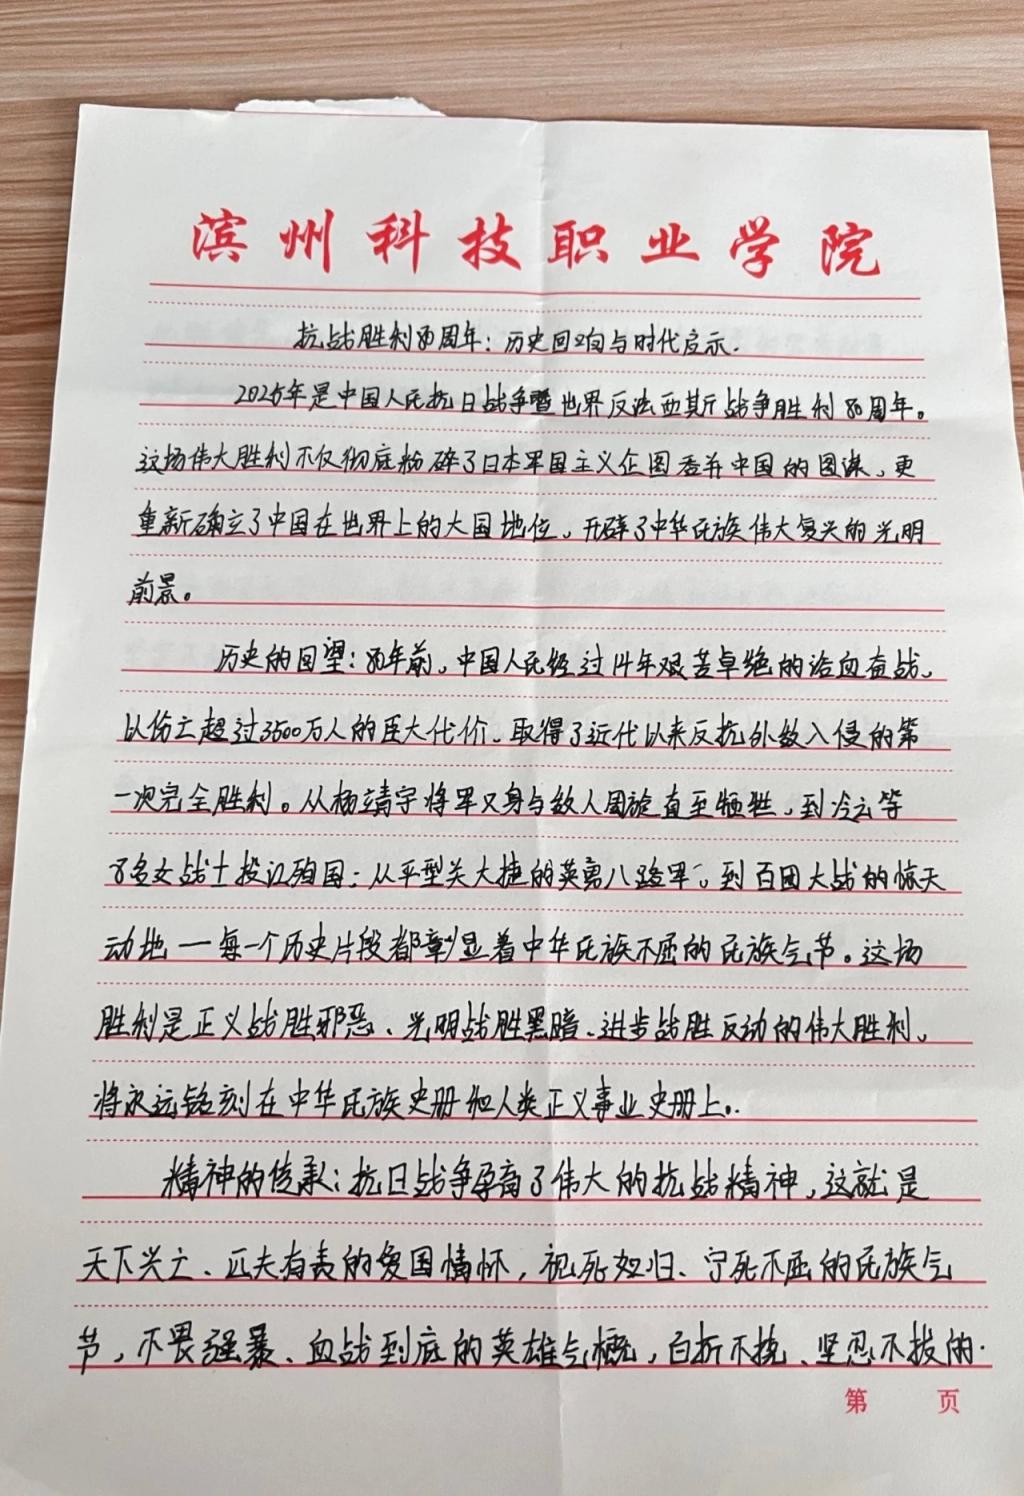 滨州科技职业学院
抗战胜利80周年：历史回响与时代启示.
2025年是中国人民抗日战争暨世界反法西斯战争胜利80周年。
这场伟大胜利不仅彻底粉碎了日本军国主义企图吞并中国的图谋、更
重新确立了中国在世界上的大国地位、开辟了中华民族伟大复兴的光明
前景。
历史的回望：80年前、中国人民经过14年艰苦卓绝的浴血奋战、
以伤亡超过3500万人的巨大代价、取得了近代以来反抗外敌入侵的第
一次完全胜利。从杨靖宇将军只身与敌人周旋直至牺牲、到冷云等
8名女战士投江殉国；从平型关大捷的英勇八路军、到百团大战的惊天
动地一每一个历史片段都彰显着中华民族不屈的民族气节。这场
胜利是正义战胜邪恶、光明战胜黑暗、进步战胜反动的伟大胜利、
将永远铭刻在中华民族史册和人类正义事业史册上。
精神的传承：抗日战争孕育了伟大的抗战精神，这就是
天下兴亡、匹夫有责的爱国情怀，视死如归、宁死不屈的民族气
节，不畏强暴、血战到底的英雄气概，百折不挠、坚忍不拔的
第 页